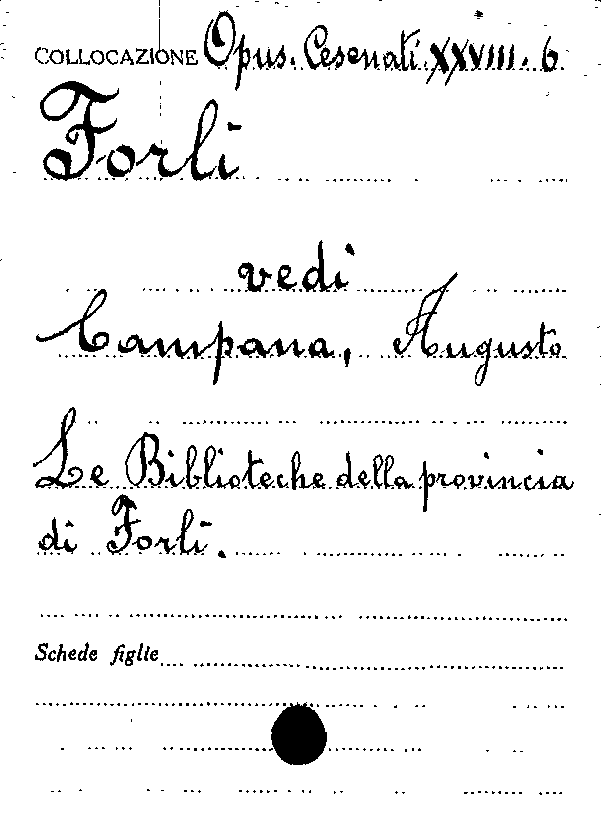 COLLOCAZIONE Opus. Cesenati XXVIII. 6
Forlì
vedi
Campana, Augusto
Le Biblioteche della provincia
di Forlì.
Schede figlie